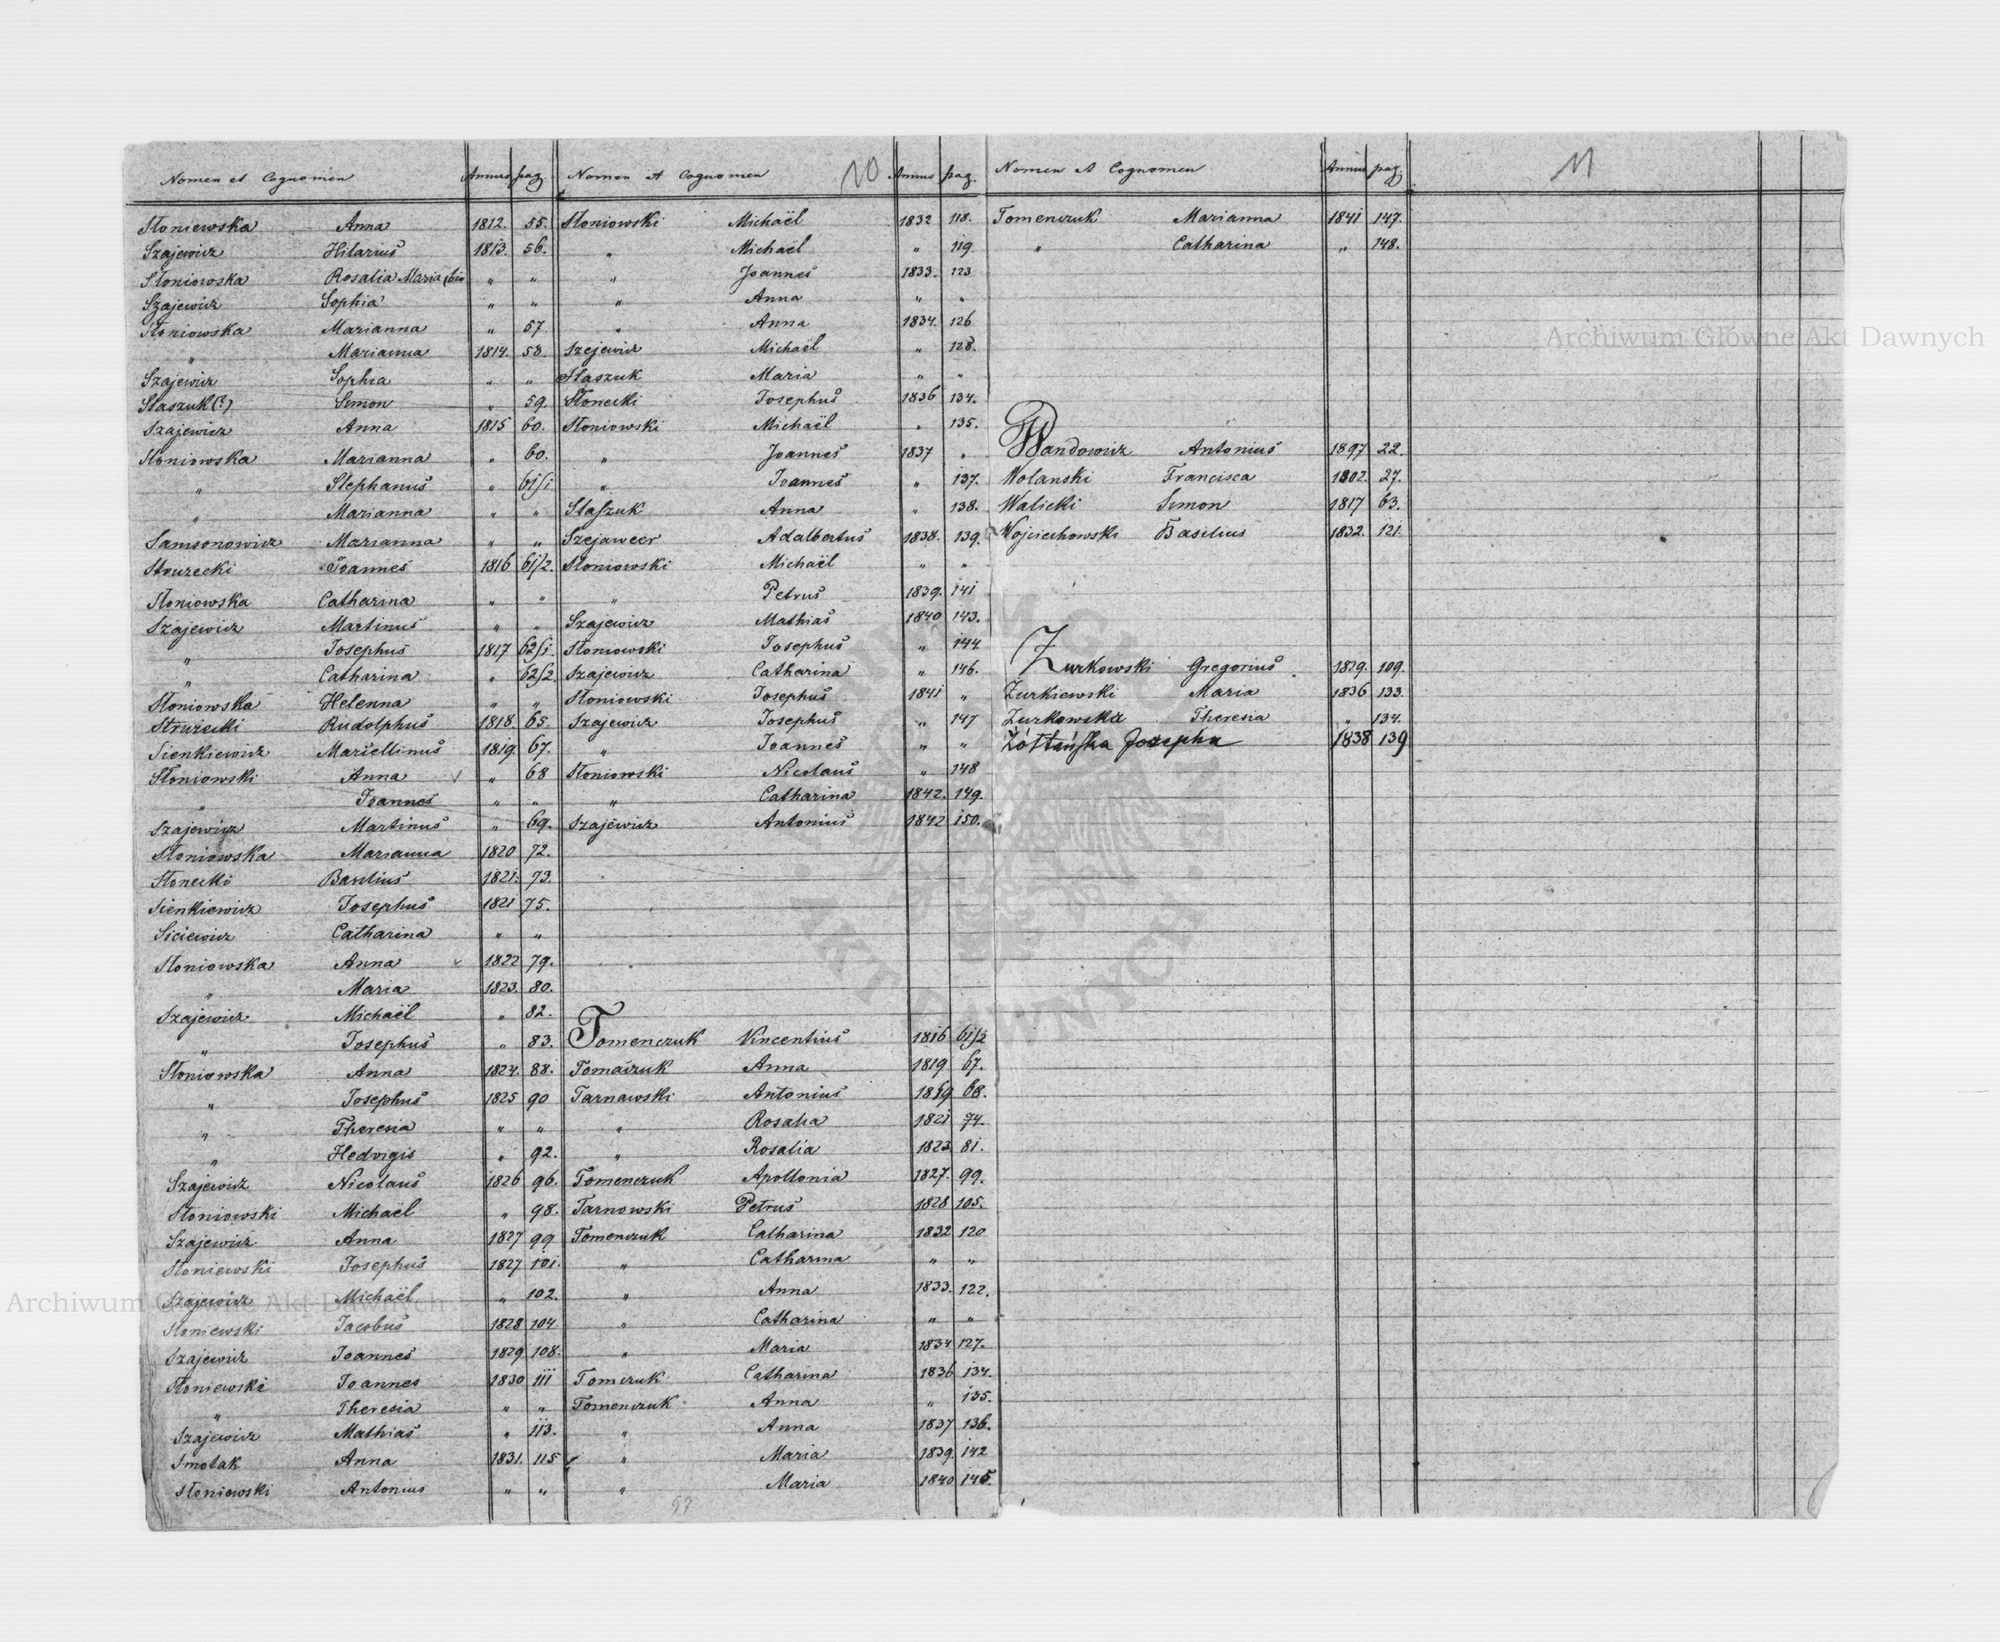 Nomen et Cognomen Annus pag.
Słoniewska Anna 1812. 55.
Szajewicz Hilarius 1813. 56.
Słoniowska Rosalia Maria „ „
Szajewicz Sophia „ „
Słoniowska Marianna „ 57.
„ Marianna 1814. 58.
Szajewicz Sophia „ „
Staszuk(?) Simon „ 59.
Szajewicz Anna 1815 60.
Słoniowska Marianna „ 60.
„ Stephanus „ 61/1
„ Marianna „ „
Samsonowicz Marianna „ „
Struzecki Joannes 1816 61/2.
Słoniowska Catharina „ „
Szajewicz Martinus „ „
„ Josephus 1817 62/1.
„ Catharina „ 62/2
Słoniowska Helenna „ „
Struzecki Rudolphus 1818. 65.
Sienkiewicz Marcellinus 1819. 67.
Słoniowski Anna „ 68
„ Joannes „ „
Szajewicz Martinus „ 69.
Słoniowska Marianna 1820 72.
Słonecki Basilius 1821. 73.
Sienkiewicz Josephus 1821 75.
Siciewicz Catharina „ „
Słoniowska Anna 1822 79.
„ Maria 1823. 80.
Szajewicz Michaël „ 82.
„ Josephus „ 83.
Słoniowska Anna 1824. 88.
„ Josephus 1825 90
„ Theresia „ „
„ Hedvigis „ 92.
Szajewicz Nicolaus 1826 96.
Słoniowski Michaël „ 98.
Szajewicz Anna 1827 99
Słoniewski Josephus 1827 101.
Szajewicz Michaël „ 102.
Słoniewski Jacobus 1828 104.
Szajewicz Joannes 1829 108.
Słoniewski Joannes 1830 111
„ Theresia „ „
Szajewicz Mathias „ 113.
Smolak Anna 1831. 115
Słoniewski Antonius „ „
Nomen et Cognomen 10 Annus pag.
Słoniowski Michaël 1832 118.
„ Michaël „ 119.
„ Joannes 1833. 123
„ Anna „ „
„ Anna 1834. 126
Szejewicz Michaël „ 128.
Staszuk Maria „ „
Słonecki Josephus 1836 134.
Słoniowski Michaël „ 135.
„ Joannes 1837 „
„ Joannes „ 137.
Staszuk Anna „ 138.
Szejaweer Adalbertus 1838. 139.
Słoniowski Michaël „ „
„ Petrus 1839. 141
Szajewicz Mathias 1840 143.
Słoniowski Josephus „ 144
Szajewicz Catharina „ 146.
Słoniowski Josephus 1841 „
Szajewicz Josephus „ 147
„ Joannes „ „
Słoniowski Nicolaus „ 148
„ Catharina 1842. 149.
Szajewicz Antonius 1842 150.
Tomenczuk Vincentius 1816 61/2
Tomaszuk Anna 1819 67.
Tarnawski Antonius 1819 68.
„ Rosalia 1821 74.
„ Rosalia 1823 81.
Tomenczuk Apollonia 1827. 99.
Tarnowski Petrus 1828 105.
Tomenczuk Catharina 1832 120
„ Catharina „ „
„ Anna 1833. 122.
„ Catharina „ „
„ Maria 1834 127.
Tomczuk Catharina 1836 134.
Tomenczuk Anna „ 135.
„ Anna 1837 136.
„ Maria 1839. 142
„ Maria 1840 145.
97
Nomen et Cognomen Annus pag.
Tomenczuk Marianna 1841 147.
„ Catharina „ 148.
Wandowicz Antonius 1897 22.
Wolanski Francisca 1802. 27.
Walicki Simon 1817 63.
Wojciechowski Basilius 1832. 121.
Zurkowski Gregorius 1829. 109.
Zurkiewski Maria 1836 133.
Zurkowska Theresia „ 134.
Żółtańska Josepha 1838 139
11
Archiwum Główne Akt Dawnych
Archiwum Główne Akt Dawnych